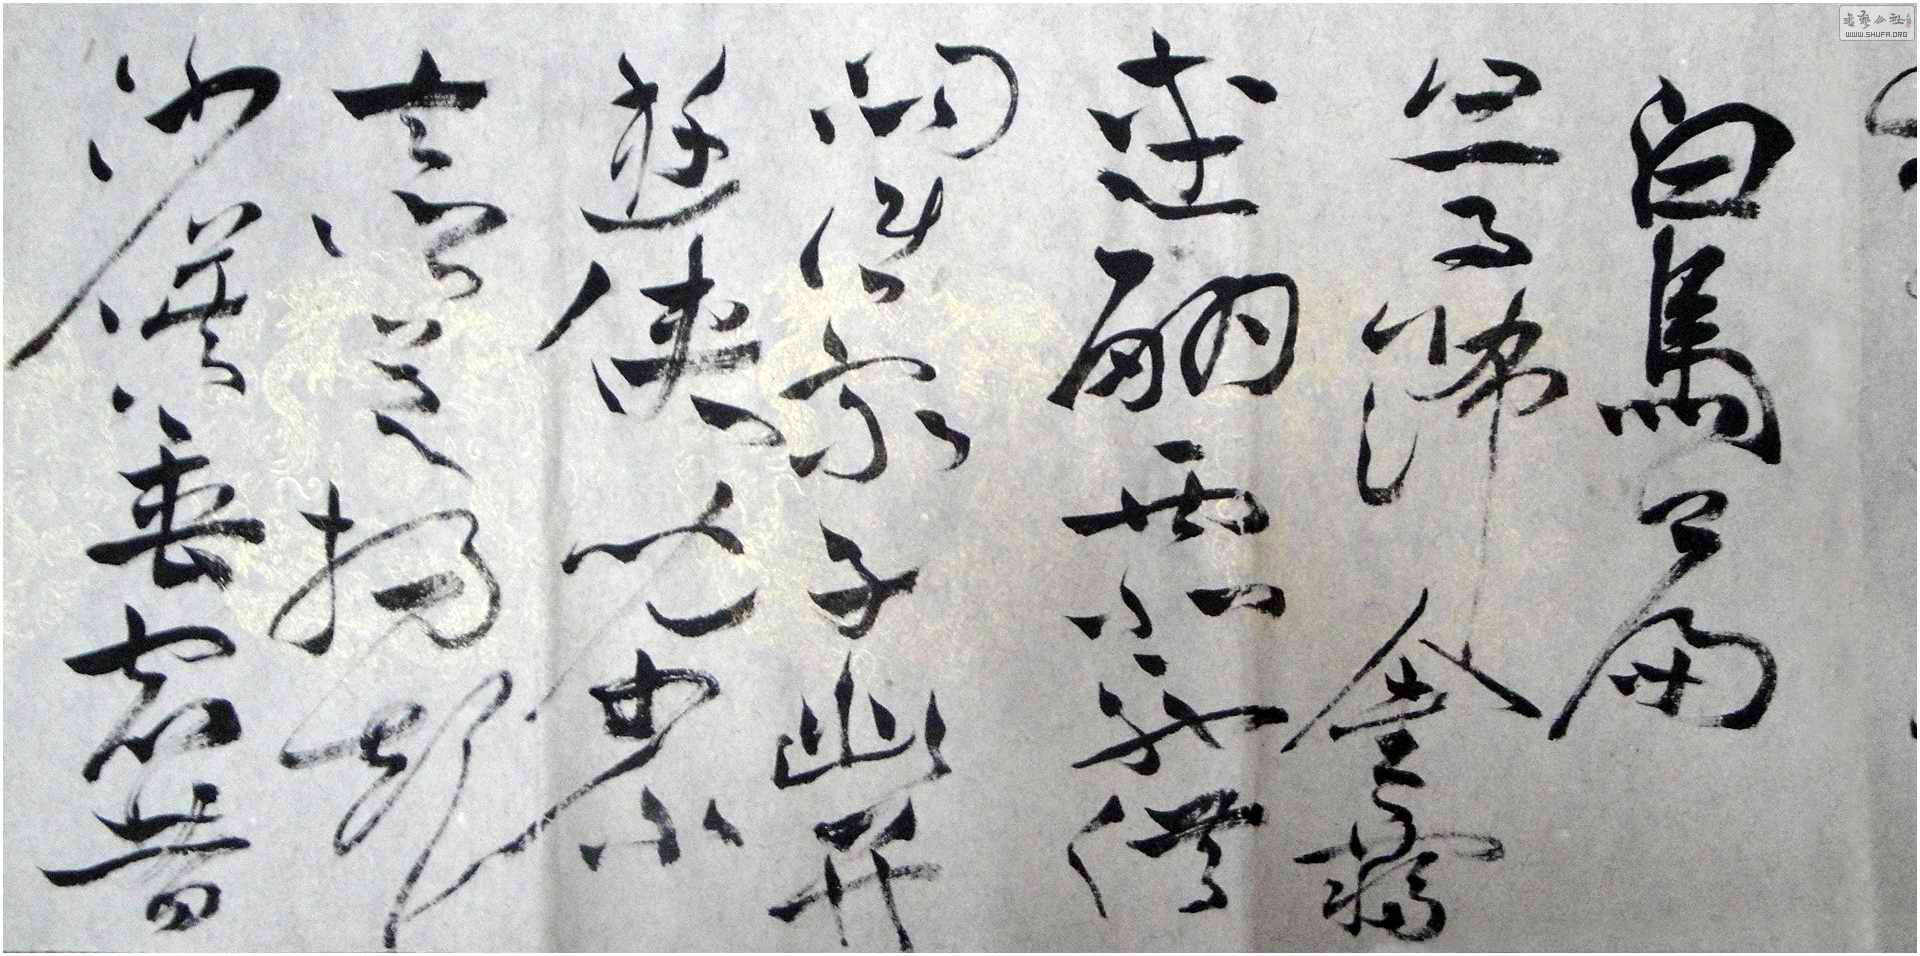 白馬篇
白馬飾金羈
連翩西北馳借
問誰家子幽并
遊俠兒少小
去鄉邑揚聲
沙漠垂宿昔
书艺公社
WWW.SHUFA.ORG